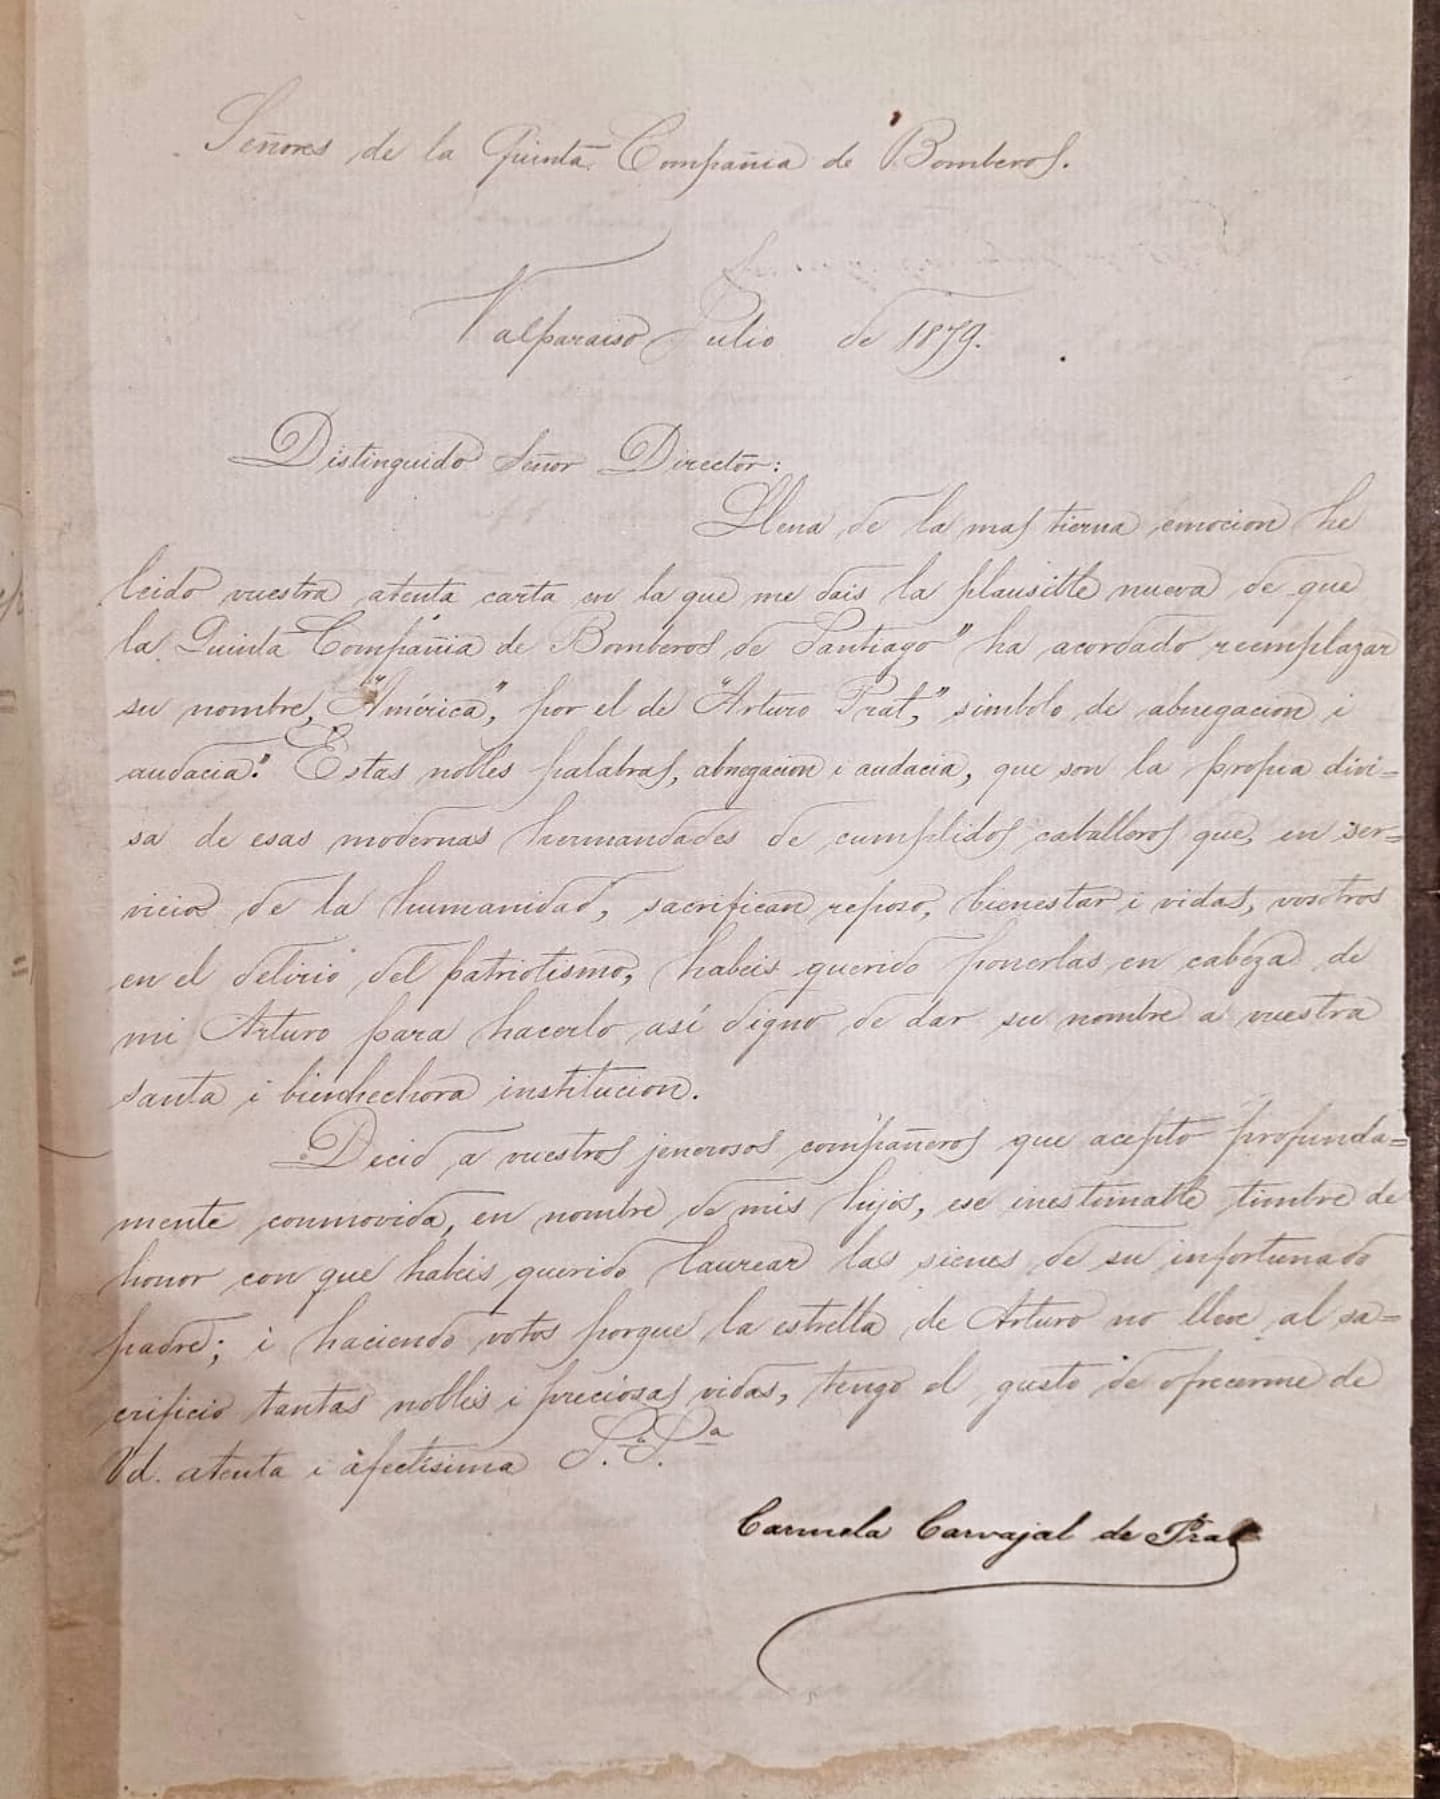 Señores de la Quinta Compañia de Bomberos.
Valparaiso Julio de 1879.
Distinguido Señor Director:
Llena de la mas tierna emocion he
leido vuestra atenta carta en la que me dais la plausible nueva de que
la Quinta Compañia de Bomberos de Santiago" ha acordado reemplazar
su nombre, "América", por el de "Arturo Prat," simbolo de abnegacion i
audacia." Estas nobles palabras, abnegacion i audacia, que son la propia divi=
sa de esas modernas hermandades de cumplidos caballeros que, en ser=
vicio de la humanidad, sacrifican reposo, bienestar i vidas, vosotros
en el delirio del patriotismo, habeis querido ponerlas en cabeza de
mi Arturo para hacerlo así digno de dar su nombre a vuestra
santa i bienhechora institucion.
Decid a vuestros jenerosos compañeros que acepto profunda=
mente conmovida, en nombre de mis hijos, ese inestimable timbre de
honor con que habeis querido laurear las sienes de su infortunado
padre; i haciendo votos porque la estrella de Arturo no lleve al sa=
crificio tantas nobles i preciosas vidas, tengo el gusto de ofrecerme de
Vd. atenta i afectisima S. S.ª
Carmela Carvajal de Prat